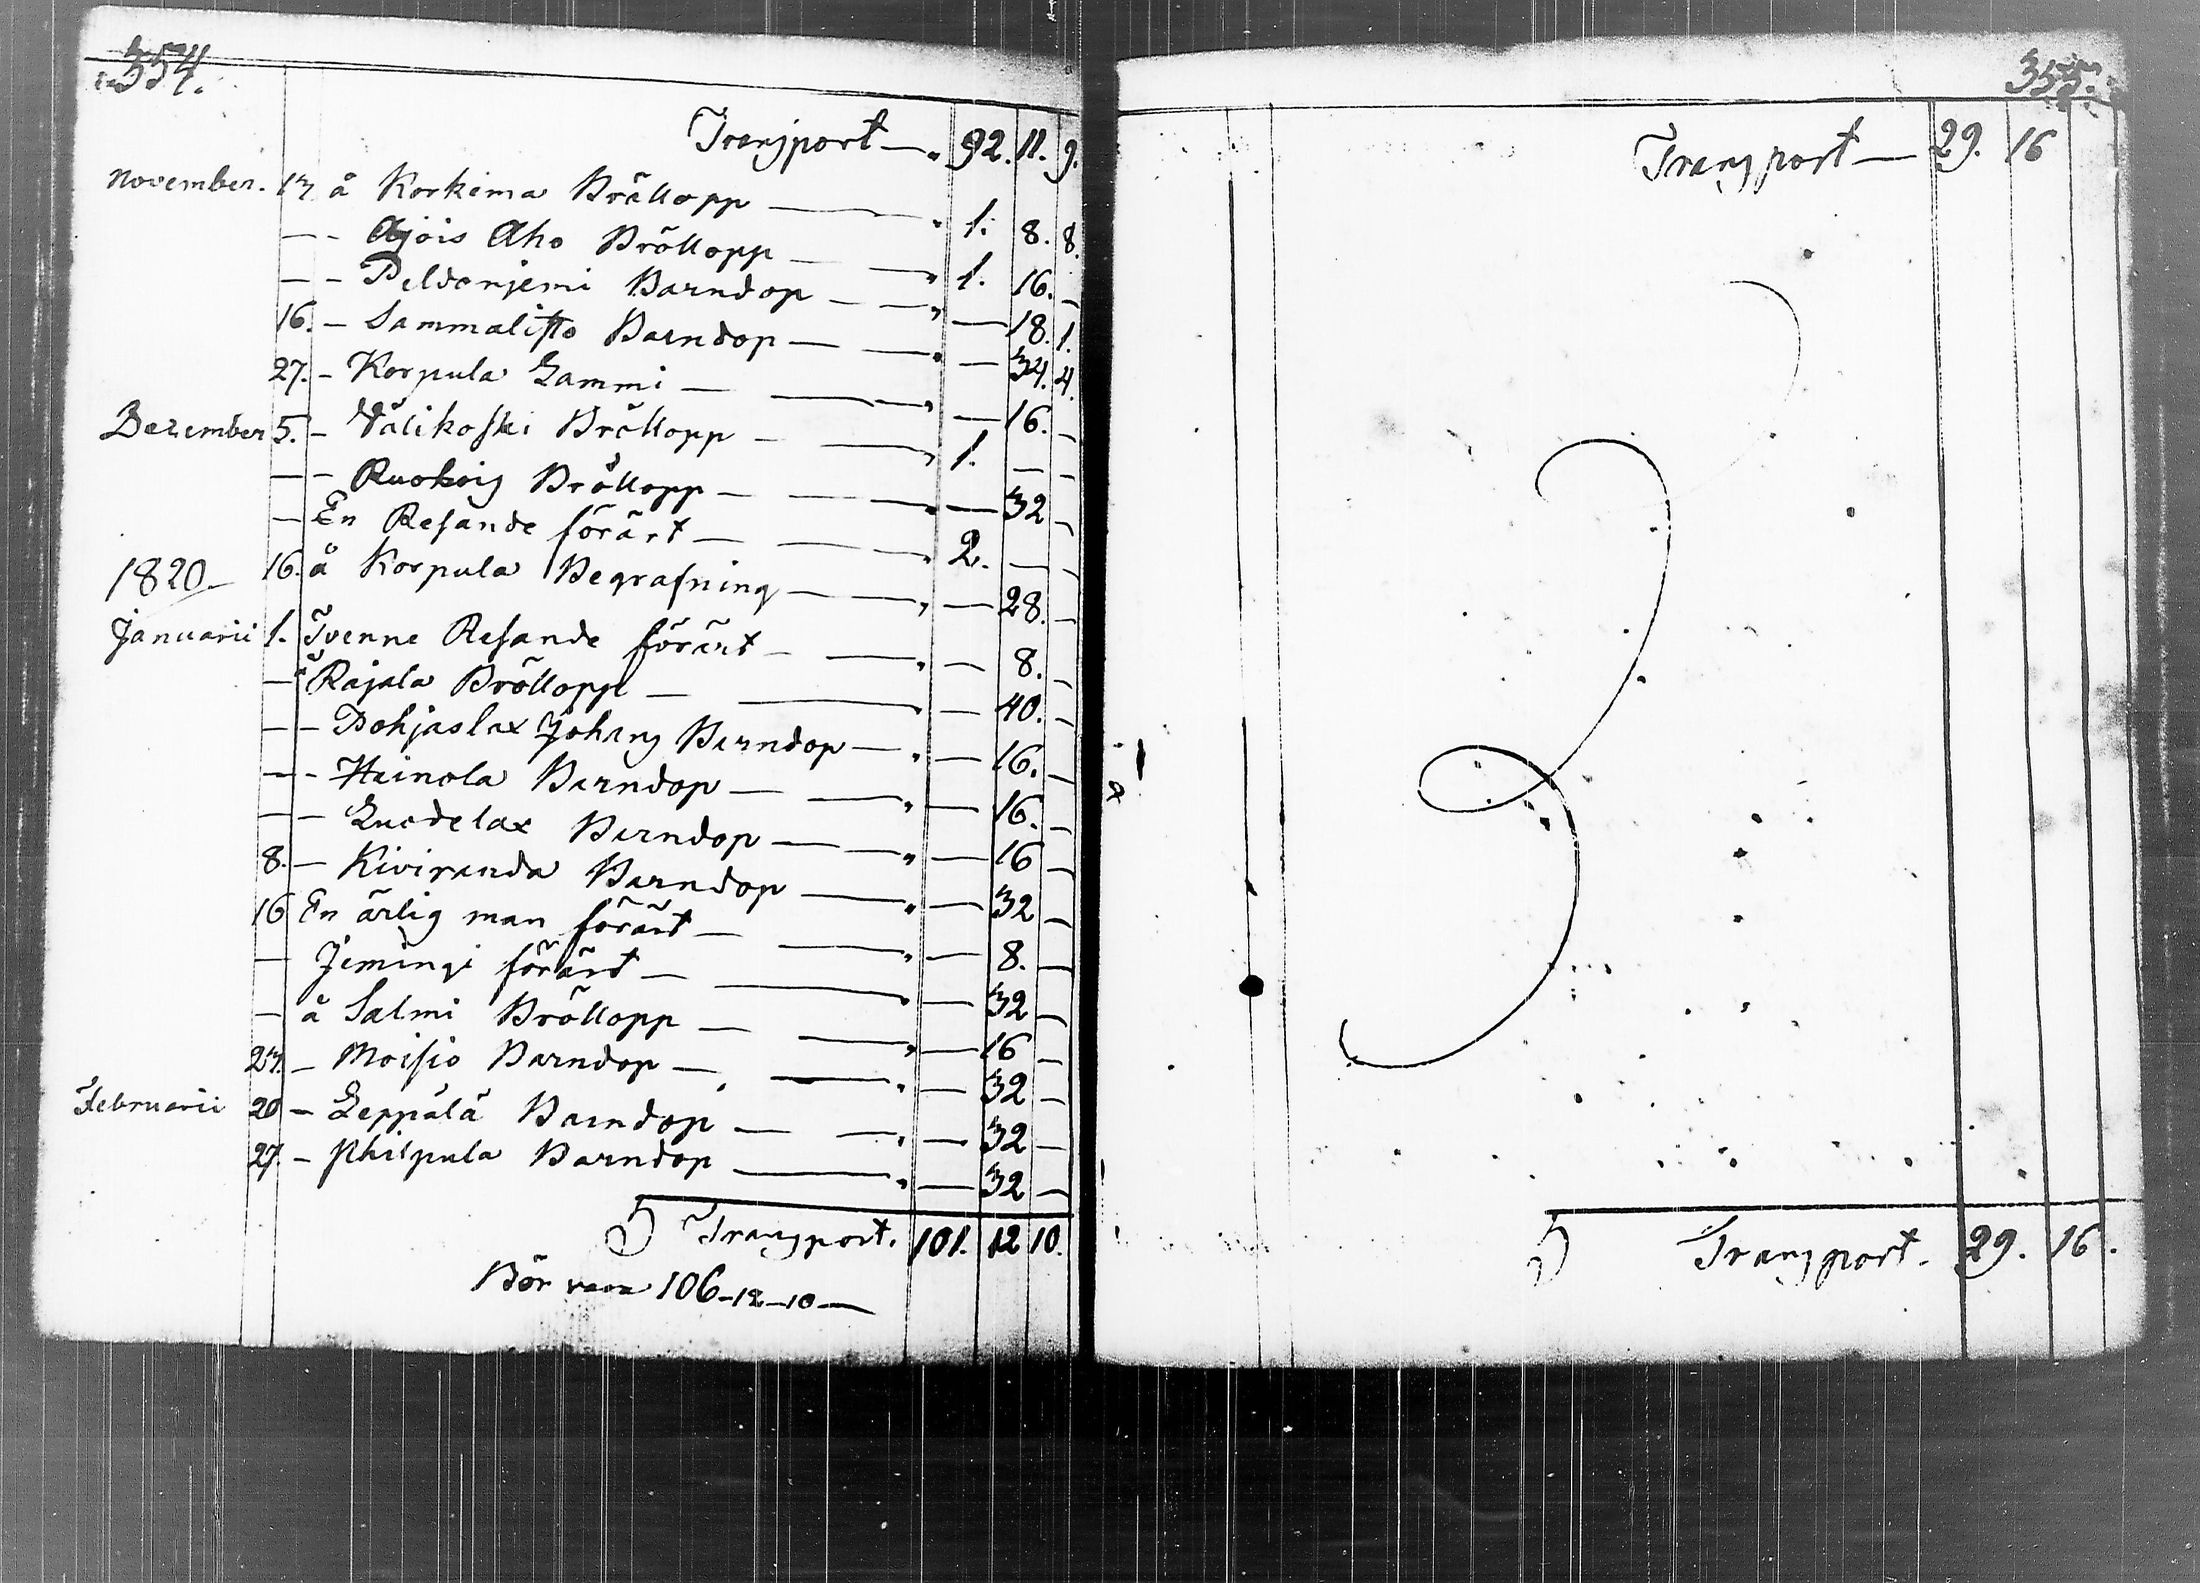 354.
Transport — „ 92. 11. 9.
November. 13 å Korkima Bröllopp — „ 1. 8. 8.
— - Ajois Aho Bröllopp — „ 1. 16. —
— - Peldonjemi Barndop — „ — 18. 1.
16. - Sammalisto Barndop — „ — 34. 4.
27. - Korpula Lammi — „ — 16. —
December 5. - Välikoski Bröllopp — „ 1. — —
— - Ruokoig Bröllopp — „ — 32 —
— En Resande förärt — „ 2. — —
16. å Korpula Begrafning — „ — 28. —
1820
Januarii 1. Tvenne Resande förärt — „ — 8. —
— å Rajala Bröllopp — „ — 40. —
— - Pohjaslax Johans Barndop — „ — 16. —
— - Heinola Barndop — „ — 16. —
— - Luodelax Barndop — „ — 16 —
8. - Kiviranda Barndop — „ — 32 —
16 En ärlig man förärt — „ — 8. —
— Jemingi förärt — „ — 32 —
— å Salmi Bröllopp — „ — 16 —
23. - Moisio Barndop — „ — 32 —
Februarii 20 - Leppälä Barndop — „ — 32 —
27. - Philpula Barndop — „ — 32 —
Transport. 101. 12 10.
Bör vara 106-12-10 —
355.
Transport — 29. 16
Transport. 29. 16.